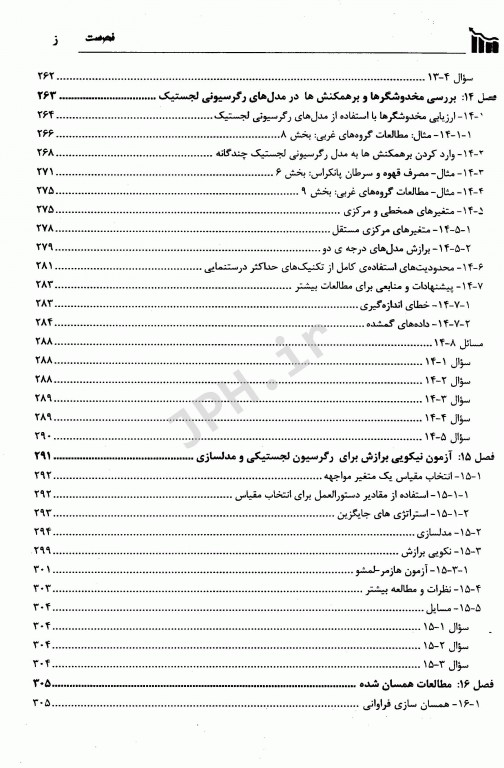 فهرست ز
سؤال ۴-۱۳ ۲۶۲
فصل ۱۴: بررسی مخدوشگرها و برهمکنش ها در مدل‌های رگرسیونی لجستیک ۲۶۳
۱-۱۴- ارزیابی مخدوشگرها با استفاده از مدل‌های رگرسیونی لجستیک ۲۶۴
۱-۱-۱۴- مثال: مطالعات گروه‌های غربی: بخش ۸ ۲۶۶
۲-۱۴- وارد کردن برهمکنش ها به مدل رگرسیونی لجستیک چندگانه ۲۶۸
۳-۱۴- مثال- مصرف قهوه و سرطان پانکراس: بخش ۶ ۲۷۱
۴-۱۴- مثال- مطالعات گروه‌های غربی: بخش ۹ ۲۷۵
۵-۱۴- متغیرهای همخطی و مرکزی ۲۷۵
۱-۵-۱۴- متغیرهای مرکزی مستقل ۲۷۸
۲-۵-۱۴- برازش مدل‌های درجه ی دو ۲۷۹
۶-۱۴- محدودیت‌های استفاده‌ی کامل از تکنیک‌های حداکثر درستنمایی ۲۸۱
۷-۱۴- پیشنهادات و منابعی برای مطالعات بیشتر ۲۸۳
۱-۷-۱۴- خطای اندازه‌گیری ۲۸۳
۲-۷-۱۴- داده‌های گمشده ۲۸۴
مسائل ۸-۱۴ ۲۸۸
سؤال ۱-۱۴ ۲۸۸
سؤال ۲-۱۴ ۲۸۸
سؤال ۳-۱۴ ۲۸۹
سؤال ۴-۱۴ ۲۸۹
سؤال ۵-۱۴ ۲۹۰
فصل ۱۵: آزمون نیکویی برازش برای رگرسیون لجستیکی و مدلسازی ۲۹۱
۱-۱۵- انتخاب مقیاس یک متغیر مواجهه ۲۹۲
۱-۱-۱۵- استفاده از مقادیر دستورالعمل برای انتخاب مقیاس ۲۹۲
۲-۱-۱۵- استراتژی های جایگزین ۲۹۳
۲-۱۵- مدلسازی ۲۹۴
۳-۱۵- نکویی برازش ۲۹۹
۱-۳-۱۵- آزمون هازمر-لمشو ۳۰۱
۴-۱۵- نظرات و مطالعه بیشتر ۳۰۳
۵-۱۵- مسایل ۳۰۴
سؤال ۱-۱۵ ۳۰۴
سؤال ۲-۱۵ ۳۰۴
سؤال ۳-۱۵ ۳۰۴
فصل ۱۶: مطالعات همسان شده ۳۰۵
۱-۱۶- همسان سازی فراوانی ۳۰۵
JPH.ir